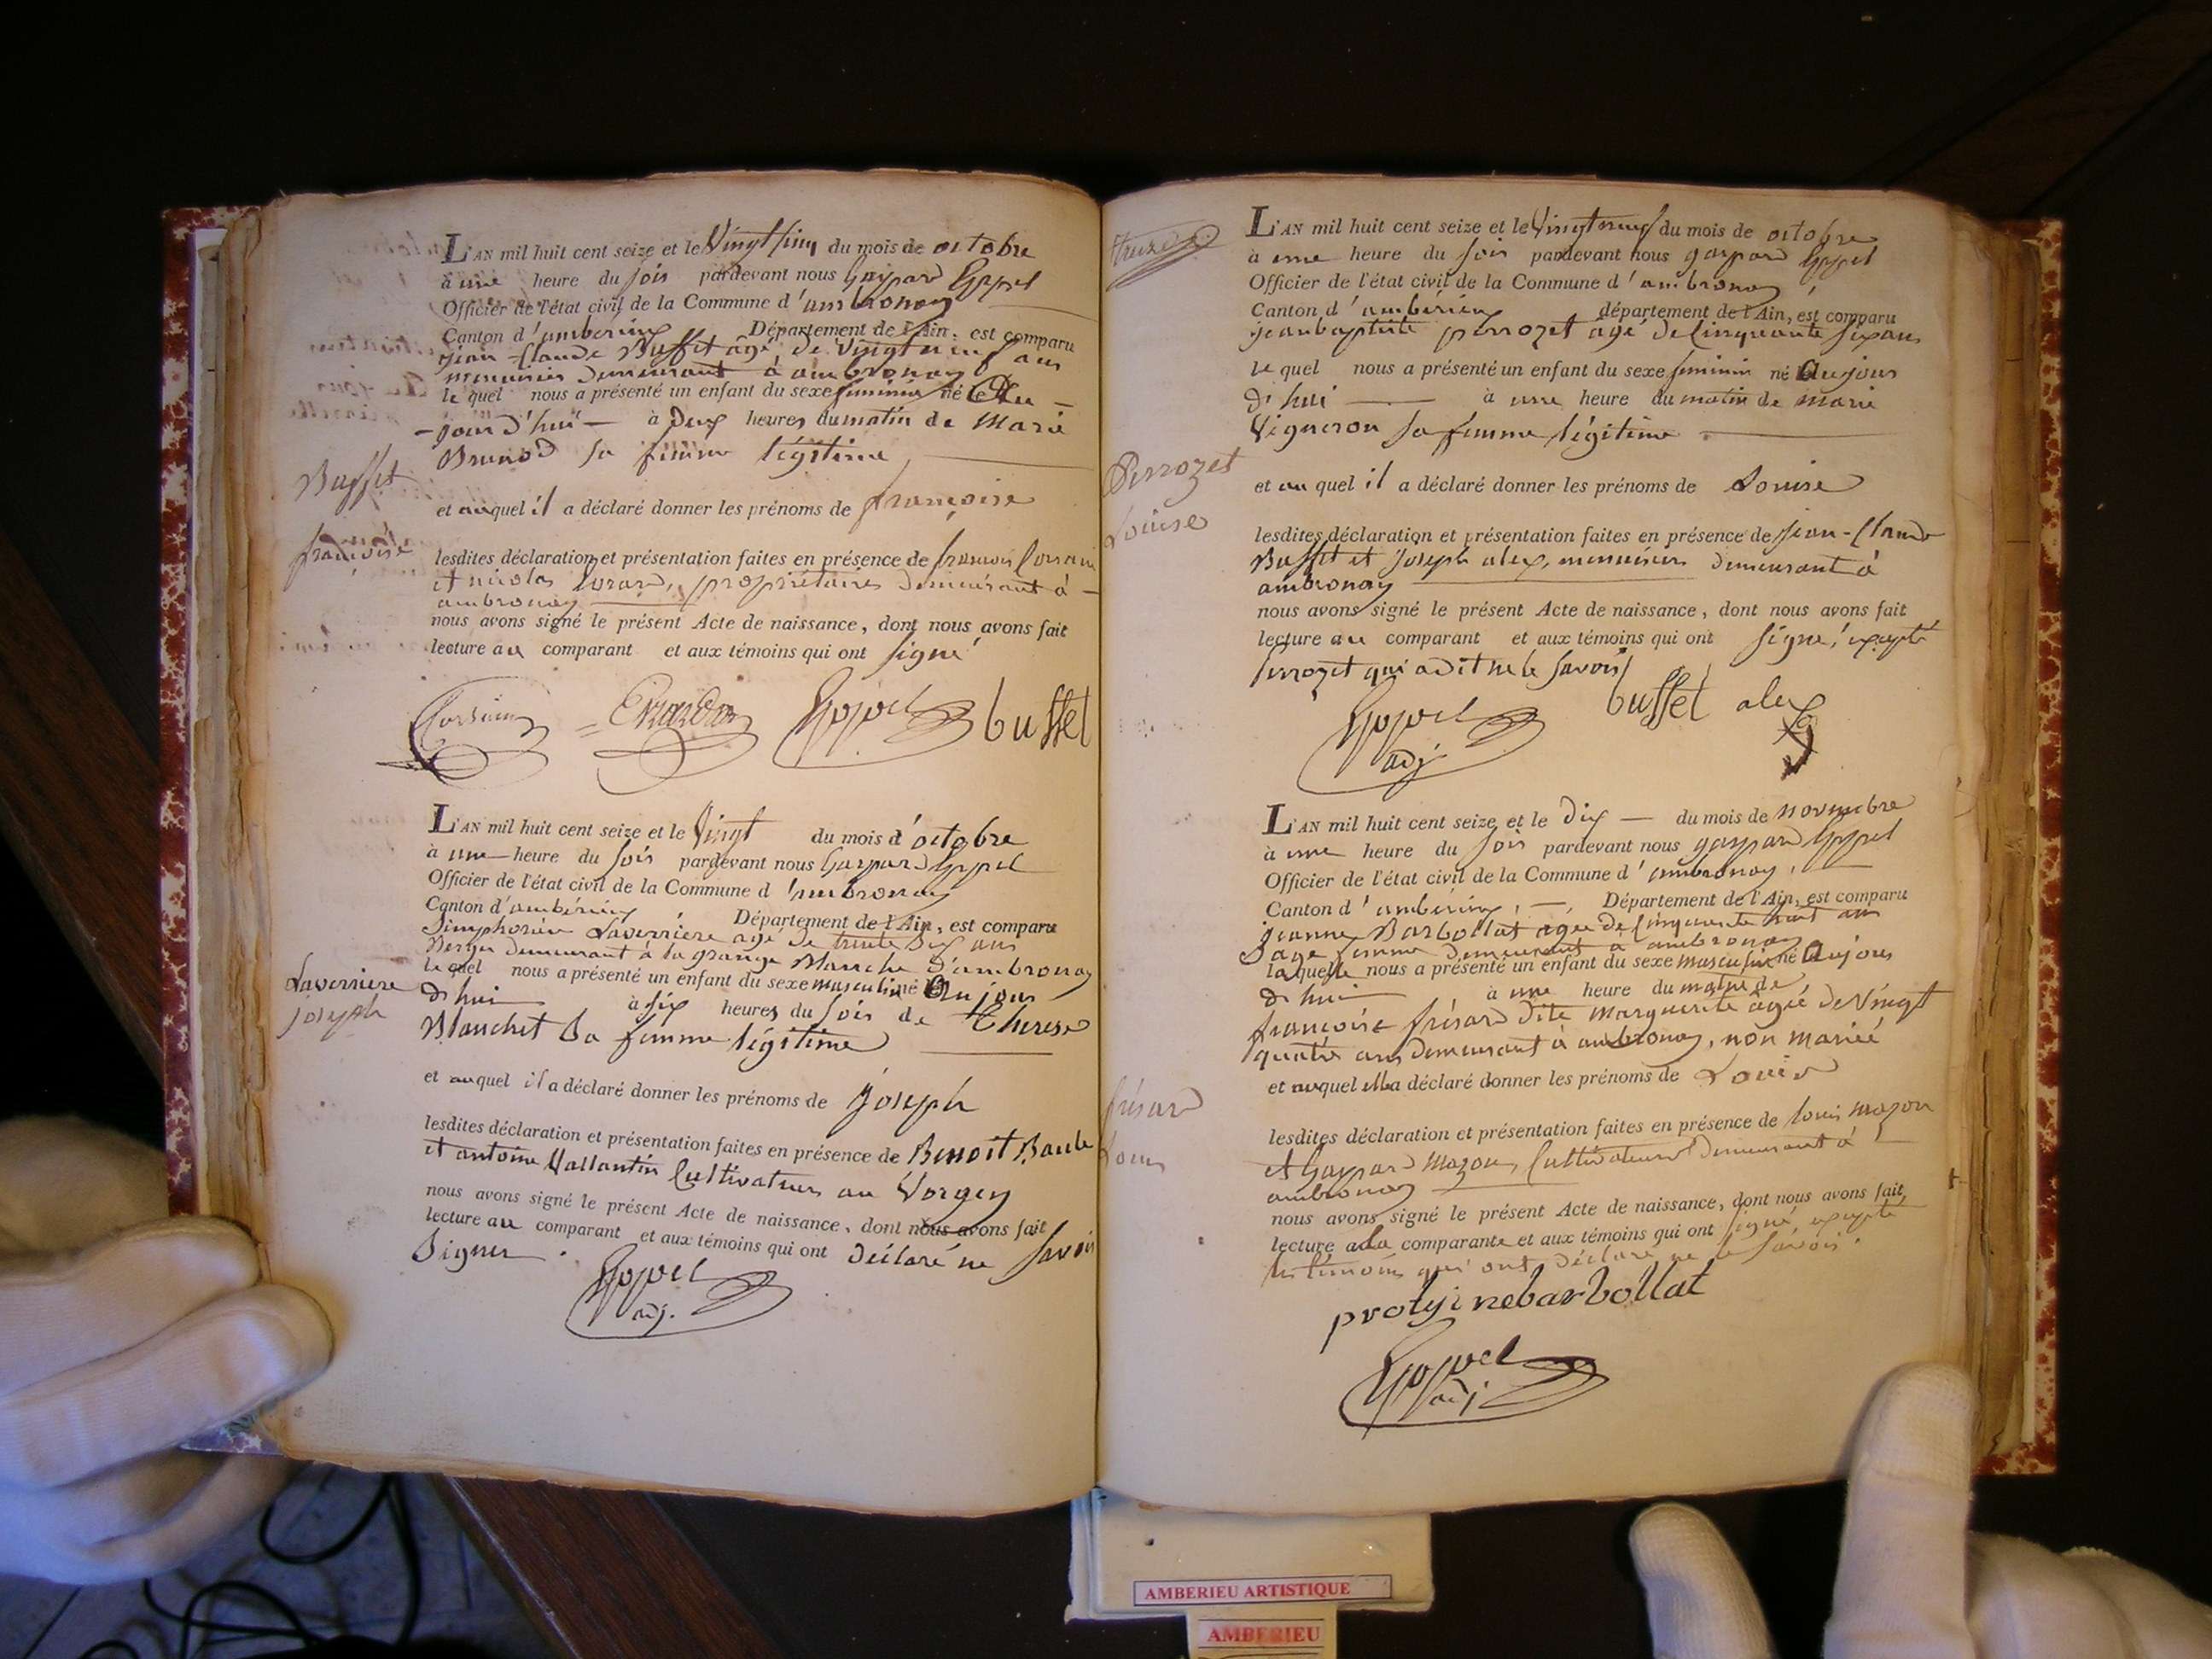 L'AN mil huit cent seize et le Vingt cinq du mois de octobre
à une heure du soir pardevant nous Gaspard Eppel
Officier de l'état civil de la Commune d'ambronay
Canton d'amberieu Département de l'Ain, est comparu
jean Claude Buffet âgé de Vingt neuf ans
menuisier demeurant à ambronay
le quel nous a présenté un enfant du sexe feminin né le Au
jourd'hui à Deux heures du matin de Marie
Brunod sa femme légitime
Buffet
et auquel il a déclaré donner les prénoms de françoise
françoise
lesdites déclaration et présentation faites en présence de francois
et nicolas propriétaires demeurant à
ambronay
nous avons signé le présent Acte de naissance, dont nous avons fait
lecture au comparant et aux témoins qui ont signé
Eppel buffet
L'AN mil huit cent seize et le Vingt du mois d'octobre
à une heure du soir pardevant nous Gaspard Eppel
Officier de l'état civil de la Commune d'ambronay
Canton d'amberieu Département de l'Ain, est comparu
Simphorien Laverriere agé de trente Six ans
Berger demeurant à la grange Blanche d'ambronay
le quel nous a présenté un enfant du sexe masculin né Aujour
Laverriere
joseph
d'hui à six heures du soir de Therese
Blanchet Sa femme légitime
et auquel il a déclaré donner les prénoms de joseph
lesdites déclaration et présentation faites en présence de Benoit
et antoine Vallantin Cultivateurs au Vorgey
nous avons signé le présent Acte de naissance, dont nous avons fait
lecture au comparant et aux témoins qui ont déclaré ne savoir
Signer.
Eppel
adj.
L'AN mil huit cent seize et le Vingt neuf du mois de octobre
à une heure du soir pardevant nous gaspard Eppel
Officier de l'état civil de la Commune d'ambronay
Canton d'amberieu département de l'Ain, est comparu
jean baptiste perrozet agé de Cinquante six ans
le quel nous a présenté un enfant du sexe feminin né Aujour
d'hui à une heure du matin de marie
Vigneron sa femme légitime
Perrozet
et au quel il a déclaré donner les prénoms de Louise
Louise
lesdites déclaration et présentation faites en présence de jean-Claude
Buffet et joseph alex, menuisiers demeurant à
ambronay
nous avons signé le présent Acte de naissance, dont nous avons fait
lecture au comparant et aux témoins qui ont signé, excepté
perrozet qui a dit ne le savoir
buffet alex
Eppel
adj
L'AN mil huit cent seize et le Dix du mois de novembre
à une heure du soir pardevant nous gaspard Eppel
Officier de l'état civil de la Commune d'ambronay,
Canton d'amberieu, Département de l'Ain, est comparu
jeanne Barbollat agée de Cinquante huit ans
Sage femme demeurant à ambronay
laquelle nous a présenté un enfant du sexe masculin né Aujour
d'hui à une heure du matin de
françoise frésard dite marguerite agée de Vingt
quatre ans demeurant à ambronay, non mariée
et auquel elle a déclaré donner les prénoms de Louis
frésard
Louis
lesdites déclaration et présentation faites en présence de louis mazon
et Gaspard Mazon, Cultivateurs demeurant à
ambronay
nous avons signé le présent Acte de naissance, dont nous avons fait
lecture à la comparante et aux témoins qui ont signé, excepté
les témoins qui ont déclaré ne le savoir.
barbollat
Eppel
adj
AMBERIEU ARTISTIQUE
AMBERIEU